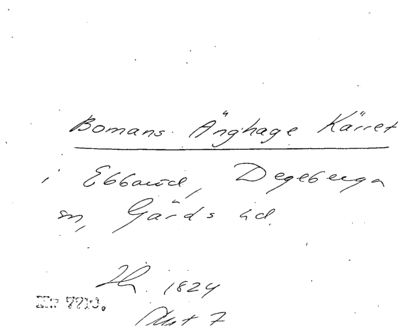 Bomans Änghage Kärret
i Ebbarid, Degeberga
sn, Gärds hd.
1824
Nr 7710.
Akt 7